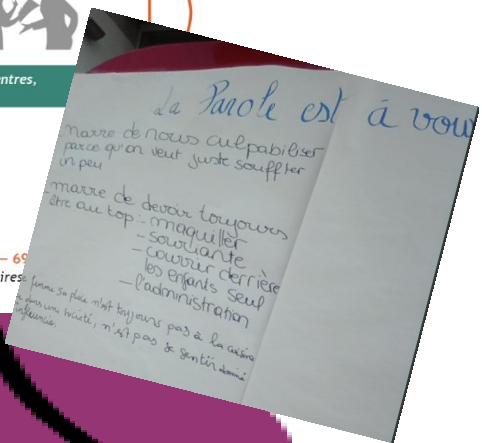 entres,
La Parole est à vou
marre de nous culpabiliser
parce qu'on veut juste souffler
un peu
marre de devoir toujours
être au top: - maquiller
- souriante
- courrir derrière
les enfants seul
- l'administration
femme sa place n'est toujours pas à la cuisine
dans une société, n'est pas se sentir
– 69
ires